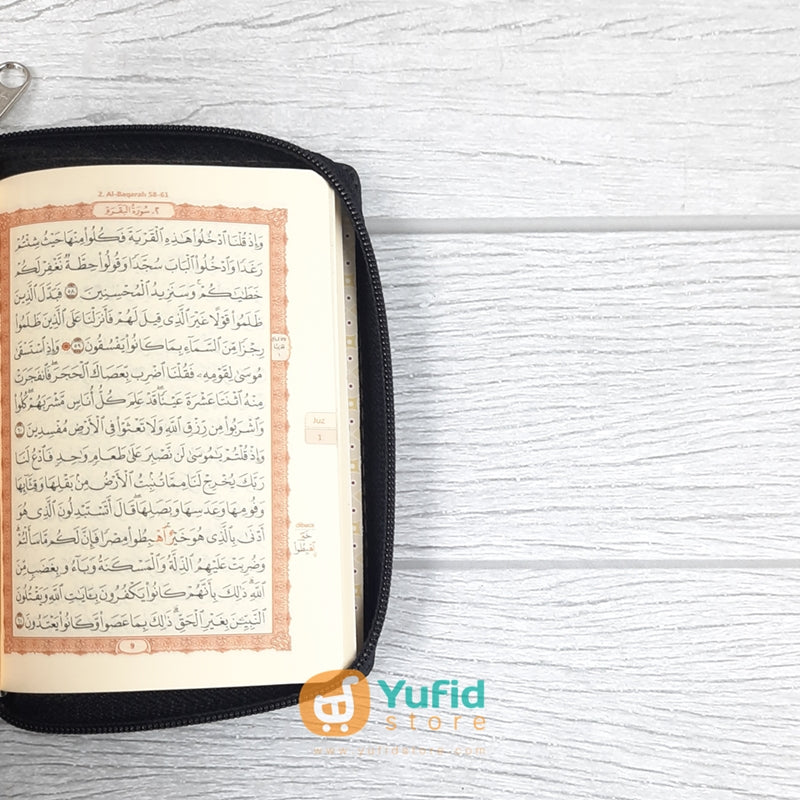 2. Al-Baqarah 58-61
٢. سُورَةُ الْبَقَرَة
وَإِذْ قُلْنَا ادْخُلُوا هَٰذِهِ الْقَرْيَةَ فَكُلُوا مِنْهَا حَيْثُ شِئْتُمْ
رَغَدًا وَادْخُلُوا الْبَابَ سُجَّدًا وَقُولُوا حِطَّةٌ نَّغْفِرْ لَكُمْ
خَطَايَاكُمْ ۚ وَسَنَزِيدُ الْمُحْسِنِينَ ٥٨ فَبَدَّلَ الَّذِينَ
ظَلَمُوا قَوْلًا غَيْرَ الَّذِي قِيلَ لَهُمْ فَأَنزَلْنَا عَلَى الَّذِينَ ظَلَمُوا
رِجْزًا مِّنَ السَّمَاءِ بِمَا كَانُوا يَفْسُقُونَ ٥٩ وَإِذِ اسْتَسْقَىٰ
مُوسَىٰ لِقَوْمِهِ فَقُلْنَا اضْرِب بِّعَصَاكَ الْحَجَرَ ۖ فَانفَجَرَتْ
مِنْهُ اثْنَتَا عَشْرَةَ عَيْنًا ۖ قَدْ عَلِمَ كُلُّ أُنَاسٍ مَّشْرَبَهُمْ ۖ كُلُوا
وَاشْرَبُوا مِن رِّزْقِ اللَّهِ وَلَا تَعْثَوْا فِي الْأَرْضِ مُفْسِدِينَ ٦٠
وَإِذْ قُلْتُمْ يَا مُوسَىٰ لَن نَّصْبِرَ عَلَىٰ طَعَامٍ وَاحِدٍ فَادْعُ لَنَا
رَبَّكَ يُخْرِجْ لَنَا مِمَّا تُنبِتُ الْأَرْضُ مِن بَقْلِهَا وَقِثَّائِهَا
وَفُومِهَا وَعَدَسِهَا وَبَصَلِهَا ۖ قَالَ أَتَسْتَبْدِلُونَ الَّذِي هُوَ
أَدْنَىٰ بِالَّذِي هُوَ خَيْرٌ ۚ اهْبِطُوا مِصْرًا فَإِنَّ لَكُم مَّا سَأَلْتُمْ ۗ
وَضُرِبَتْ عَلَيْهِمُ الذِّلَّةُ وَالْمَسْكَنَةُ وَبَاءُوا بِغَضَبٍ مِّنَ
اللَّهِ ۗ ذَٰلِكَ بِأَنَّهُمْ كَانُوا يَكْفُرُونَ بِآيَاتِ اللَّهِ وَيَقْتُلُونَ
النَّبِيِّينَ بِغَيْرِ الْحَقِّ ۗ ذَٰلِكَ بِمَا عَصَوا وَّكَانُوا يَعْتَدُونَ ٦١
9
Juz
1
dibaca
Yufid
store
www.yufidstore.com